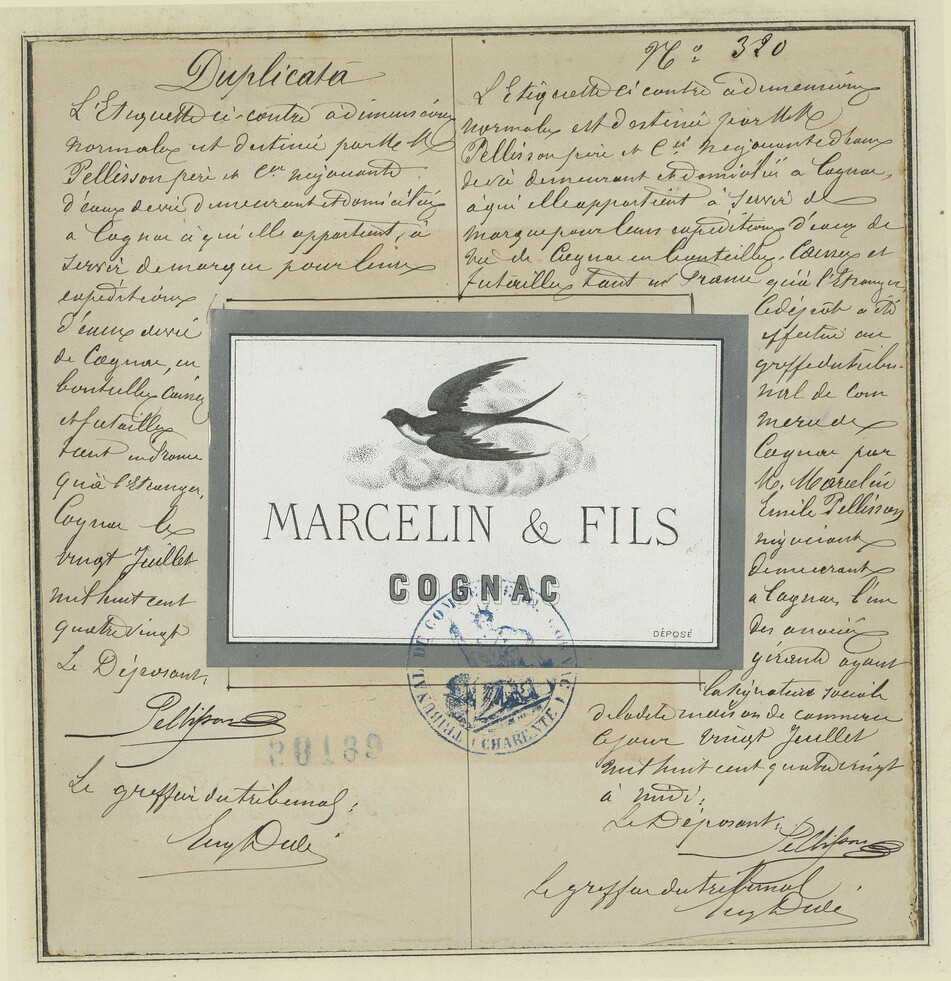 Duplicata
L'Etiquette ci-contre à dimensions
normales est destinée par M M
Pellisson père et Cie négociants
d'eaux de vie demeurant et domiciliés
à Cognac à qui elle appartient, à
servir de marque pour leurs
expéditions
d'eaux de vie
de Cognac, en
bouteilles caisses
et futailles
tant en France
qu'à l'Etranger.
Cognac le
vingt Juillet
mil huit cent
quatre vingt
Le Déposant.
Pellisson
Le greffier du tribunal:
No 320
L'Etiquette ci contre à dimensions
normales est destinée par M M
Pellisson père et Cie négociants d'eaux
de vie demeurant et domiciliés à Cognac,
à qui elle appartient à servir de
marque pour leurs expéditions d'eaux de
vie de Cognac en bouteilles, caisses et
futailles tant en France qu'à l'Etranger
le dépôt a été
effectué au
greffe du tribu-
nal de com
merce de
Cognac par
M. Marcelin
Emile Pellisson
négociant
demeurant
à Cognac, l'un
des associés
gérants ayant
la signature sociale
de la dite maison de commerce
ce jour vingt Juillet
mil huit cent quatre vingt
à midi:
Le Déposant:
Pellisson
Le greffier du tribunal
MARCELIN & FILS
COGNAC
DÉPOSÉ
TRIBUNAL DE COMMERCE COGNAC
(CHARENTE)